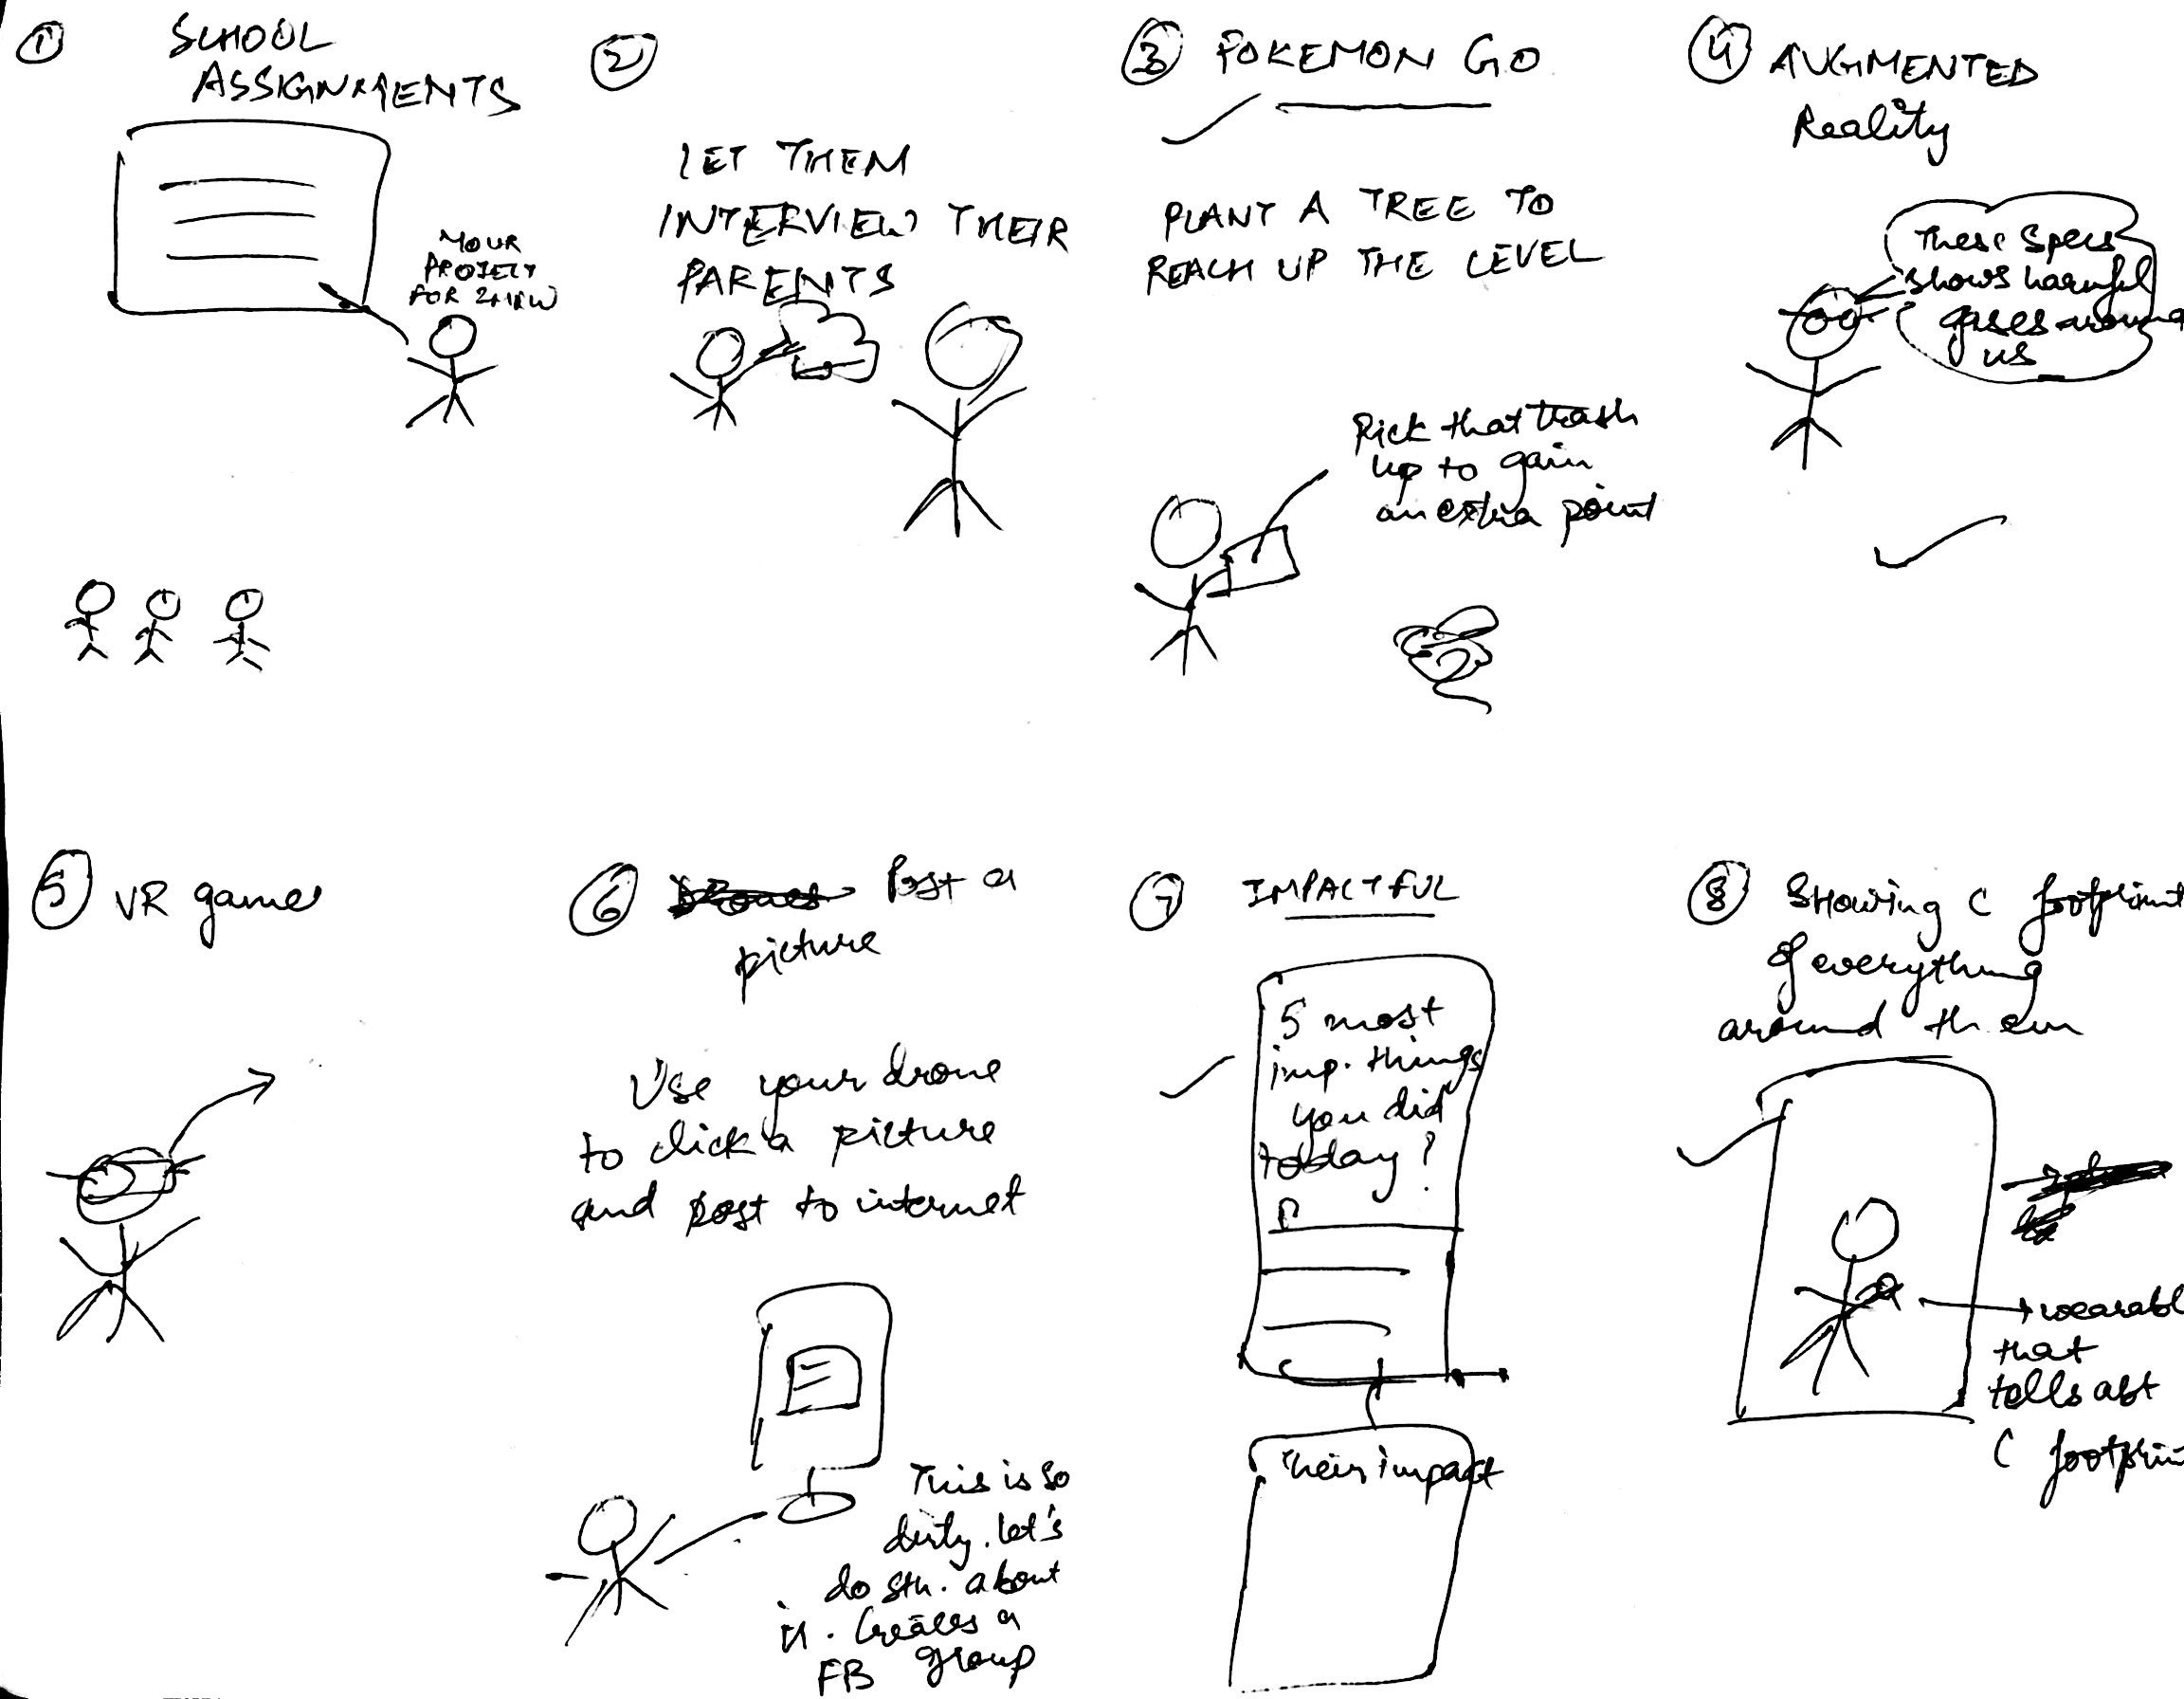 1 SCHOOL
ASSIGNMENTS
YOUR
PROJECT
FOR
2
LET THEM
INTERVIEW THEIR
PARENTS
3 POKEMON GO
PLANT A TREE TO
REACH UP THE LEVEL
Pick that trash
up to gain
an extra point
4 AUGMENTED
Reality
These Specs
shows harmful
gases around
us
5 VR games
6 Post a
picture
Use your drone
to click a picture
and post to internet
This is so
dirty. let's
do sth. about
it. Creates a
FB group
7 IMPACTFUL
5 most
imp. things
you did
today?
Their impact
8 SHowing C footprint
of everything
around them
wearabl
that
tells abt
C footprin